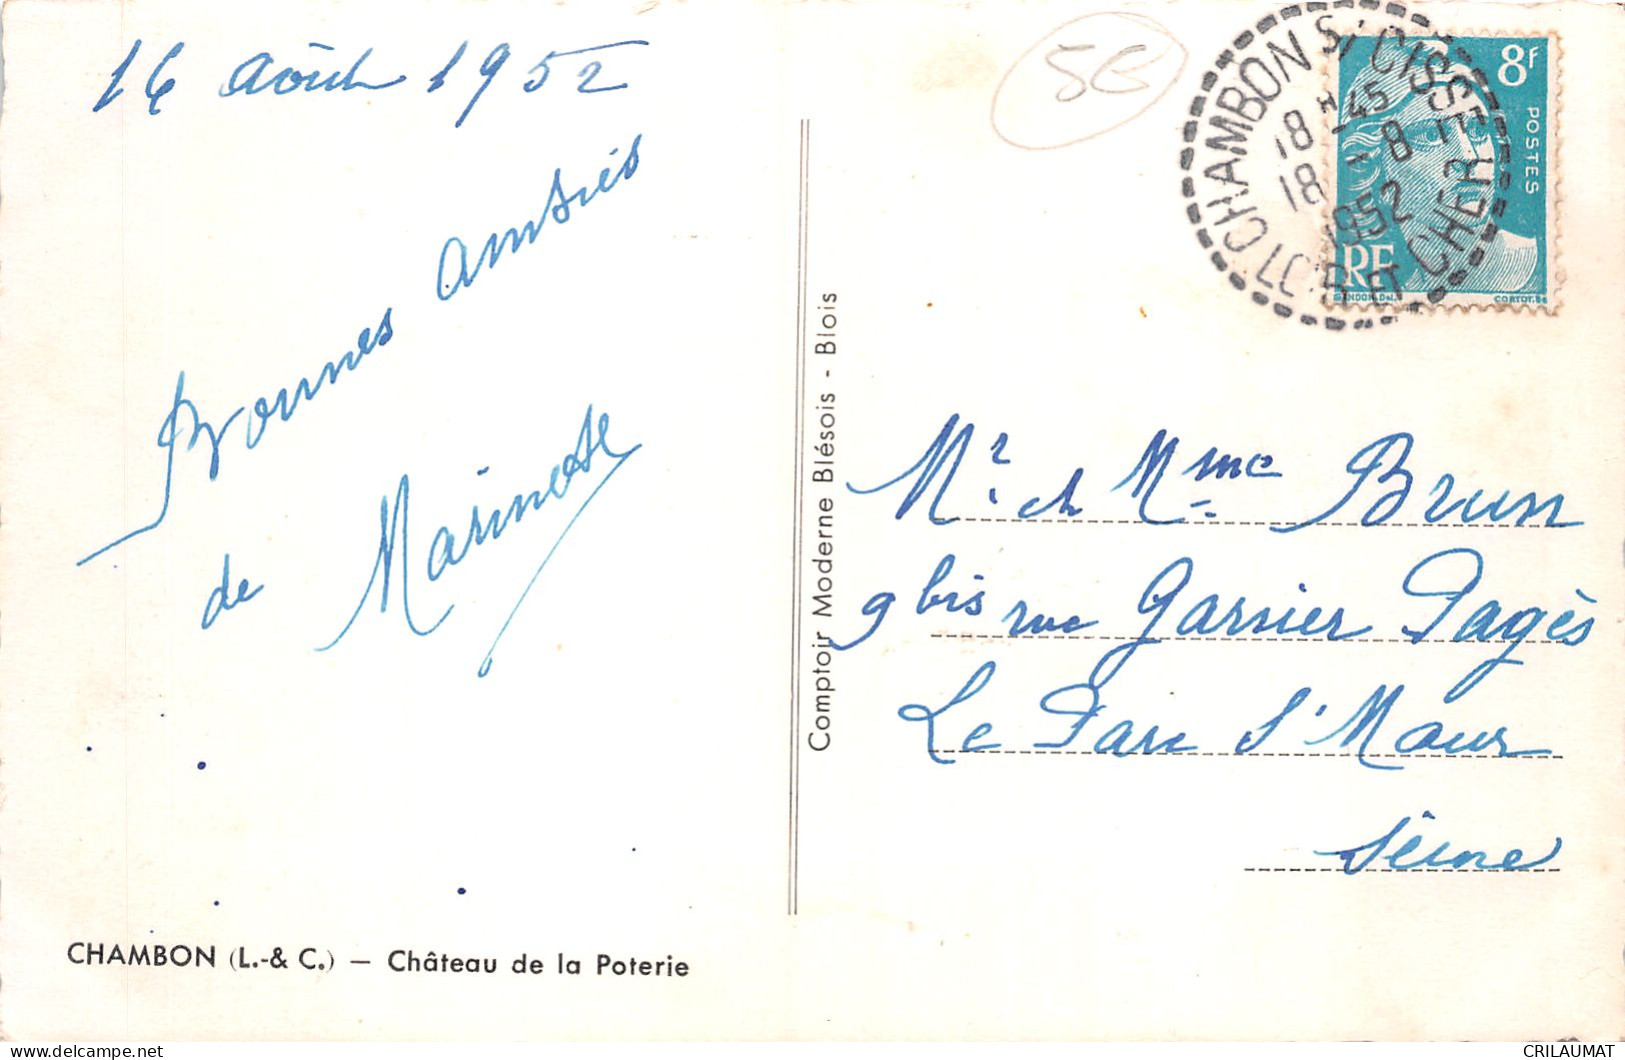 16 Août 1952
Bonnes amitiés
de Marinette
CHAMBON (L.-& C.) — Château de la Poterie
Comptoir Moderne Blésois - Blois
5G
CHAMBON S/ CISSE
18 H -45
18 -8
1952
LOIR ET CHER
8F
POSTES
RF
GANDON DEL.
CORTOT.Sc
Mr. et Mme Brun
9 bis rue Garnier Pagès
Le Parc St Maur
Seine
CRILAUMAT